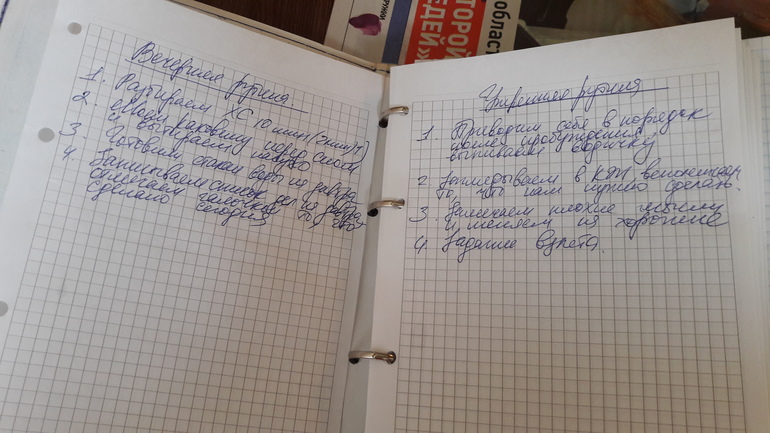 Вечерняя рутина
1. Разбираем ХС 10 мин (2 мин)
2. Моем раковину перед сном
и вытираем насухо
3. Готовим стакан воды на завтра
4. Записываем список дел на завтра
отмечаем галочкой то, что
сделано сегодня
Утренняя рутина
1. Приводим себя в порядок
после пробуждения
выпиваем водичку
2 Заглядываем в КЖ вспоминаем
то, что нам нужно сделать.
3. Замечаем плохие мысли
и меняем их на хорошие
4. Задание взлёта.
област
ТОРОЙ
ЕДЕЙ»